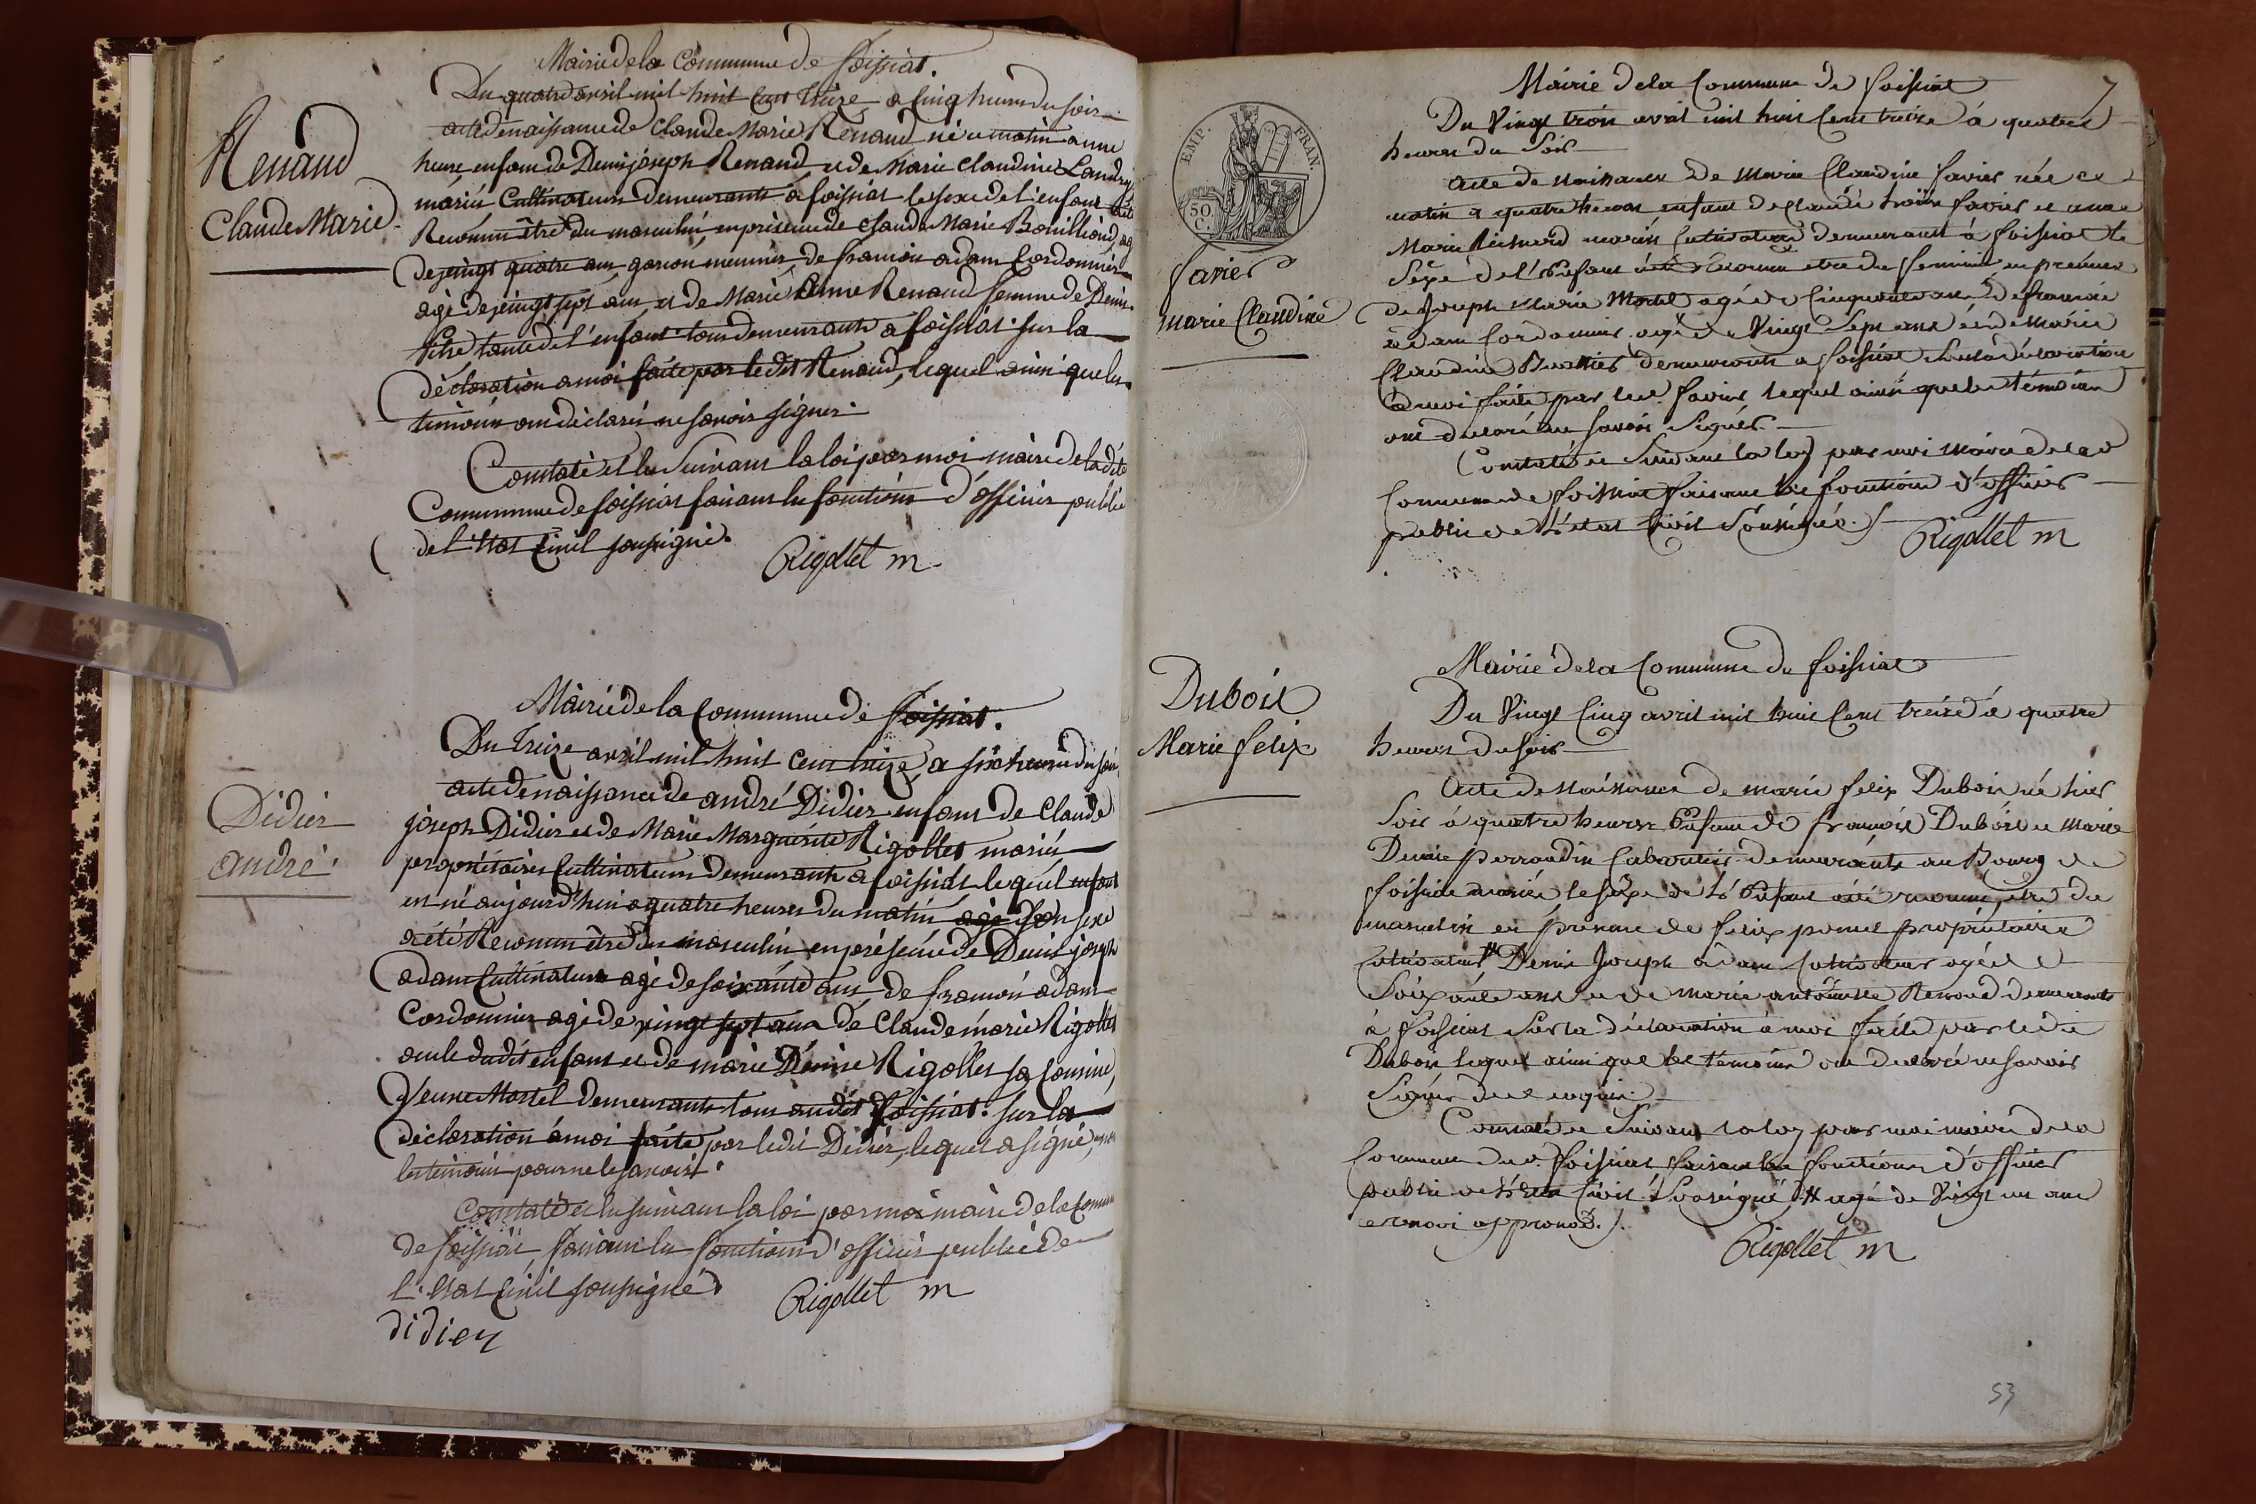 Mairie de la Commune de foissiat.
Du quatre avril mil huit cent treize a cinq heure du soir
acte de naissance de Claude Marie Renaud né ce matin a une
heure enfant de Denis joseph Renaud et de Marie Claudine Landry
mariés Cultivateurs demeurants à foissiat le sexe de l'enfant a été
Reconnu être du masculin, en présence de Claude Marie Bouilliond, agé
de vingt quatre ans, garcon meunier, de francois adam Cordonnier
agé de vingt sept ans, et de Marie Anne Renaud femme de Denis
tante de l'enfant tous demeurants a foissiat. sur la
déclaration a moi faite par ledit Renaud, lequel ainsi que les
témoins ont déclaré ne savoir signer.
Constaté et lu suivant la loi par moi maire de ladite
Commune de foissiat faisant les fonctions d'officier public
de l'état Civil soussigné.
Rigollet m
Renaud
Claude Marie
Mairie de la Commune de foissiat.
Du treize avril mil huit cent treize a six heures du soir
acte de naissance de andré Didier enfant de Claude
joseph Didier et de Marie Marguerite Rigollet mariés
propriétaires Cultivateurs demeurants a foissiat lequel enfant
est né aujourd'hui a quatre heures du matin son sexe
a été Reconnu être du masculin en présence de Denis joseph
adam Cultivateur agé de soixante ans de francois adam
Cordonnier agé de vingt sept ans de Claude marie Rigollet
oncle dudit enfant et de marie Denise Rigollet sa cousine,
Veuve Mortel demeurants tous audit foissiat. sur la
déclaration à moi faite par ledit Didier, lequel a signé,
les témoins pour ne le savoir.
Constaté et lu suivant la loi par moi maire de la Commune
de foissiat, faisant les fonctions d'officier public de
l'état Civil soussigné
Rigollet m
didier
Didier
andré
7
Mairie de la Commune de foissiat
Du Vingt trois avril mil huit Cent treize à quatre
heures du Soir
Acte de naissance de Marie Claudine favier née ce
matin a quatre heures enfant de Claude favier et anne
Marie mariés Cultivateurs demeurant à foissiat le
Sexe de l'Enfant a été reconnu etre du feminin en présence
de Joseph Marie Mortel agé de Cinquante ans de francois
adam Cordonnier agé de Vingt Sept ans et de Marie
Claudine demeurants a foissiat Sur la déclaration
à moi faite par led. favier lequel ainsi que les témoins
ont déclaré ne savoir Signer
Constaté Suivant la loy par moi maire de la d
Commune de foissiat faisant les fonctions d'officier
public de l'état Civil Soussigné
Rigollet m
EMP. FRAN.
50 C.
favier
marie Claudine
Mairie de la Commune de foissiat
Du Vingt Cinq avril mil huit Cent treize à quatre
heures du soir
Acte de naissance de marie felix Dubois né hier
Soir à quatre heures Enfant de francois Dubois et Marie
Denise perraudin Cabaretier demeurants au Bourg de
foissiat mariés le sexe de l'Enfant a été reconnu etre du
masculin en présence de felix propriétaire
Cultivateur # Denis Joseph adam Cultivateur agé de
Soixante ans et de marie antoinette Renoud demeurants
à foissiat Sur la déclaration à moi faite par ledit
Dubois lequel ainsi que les témoins ont déclaré ne savoir
Signer de ce requis
Constaté Suivant la loy par moi maire de la
Commune dud. foissiat faisant les fonctions d'officier
public de l'état Civil Soussigné # agé de Vingt un ans
renvoi approuvé.
Rigollet m
Dubois
Marie felix
53